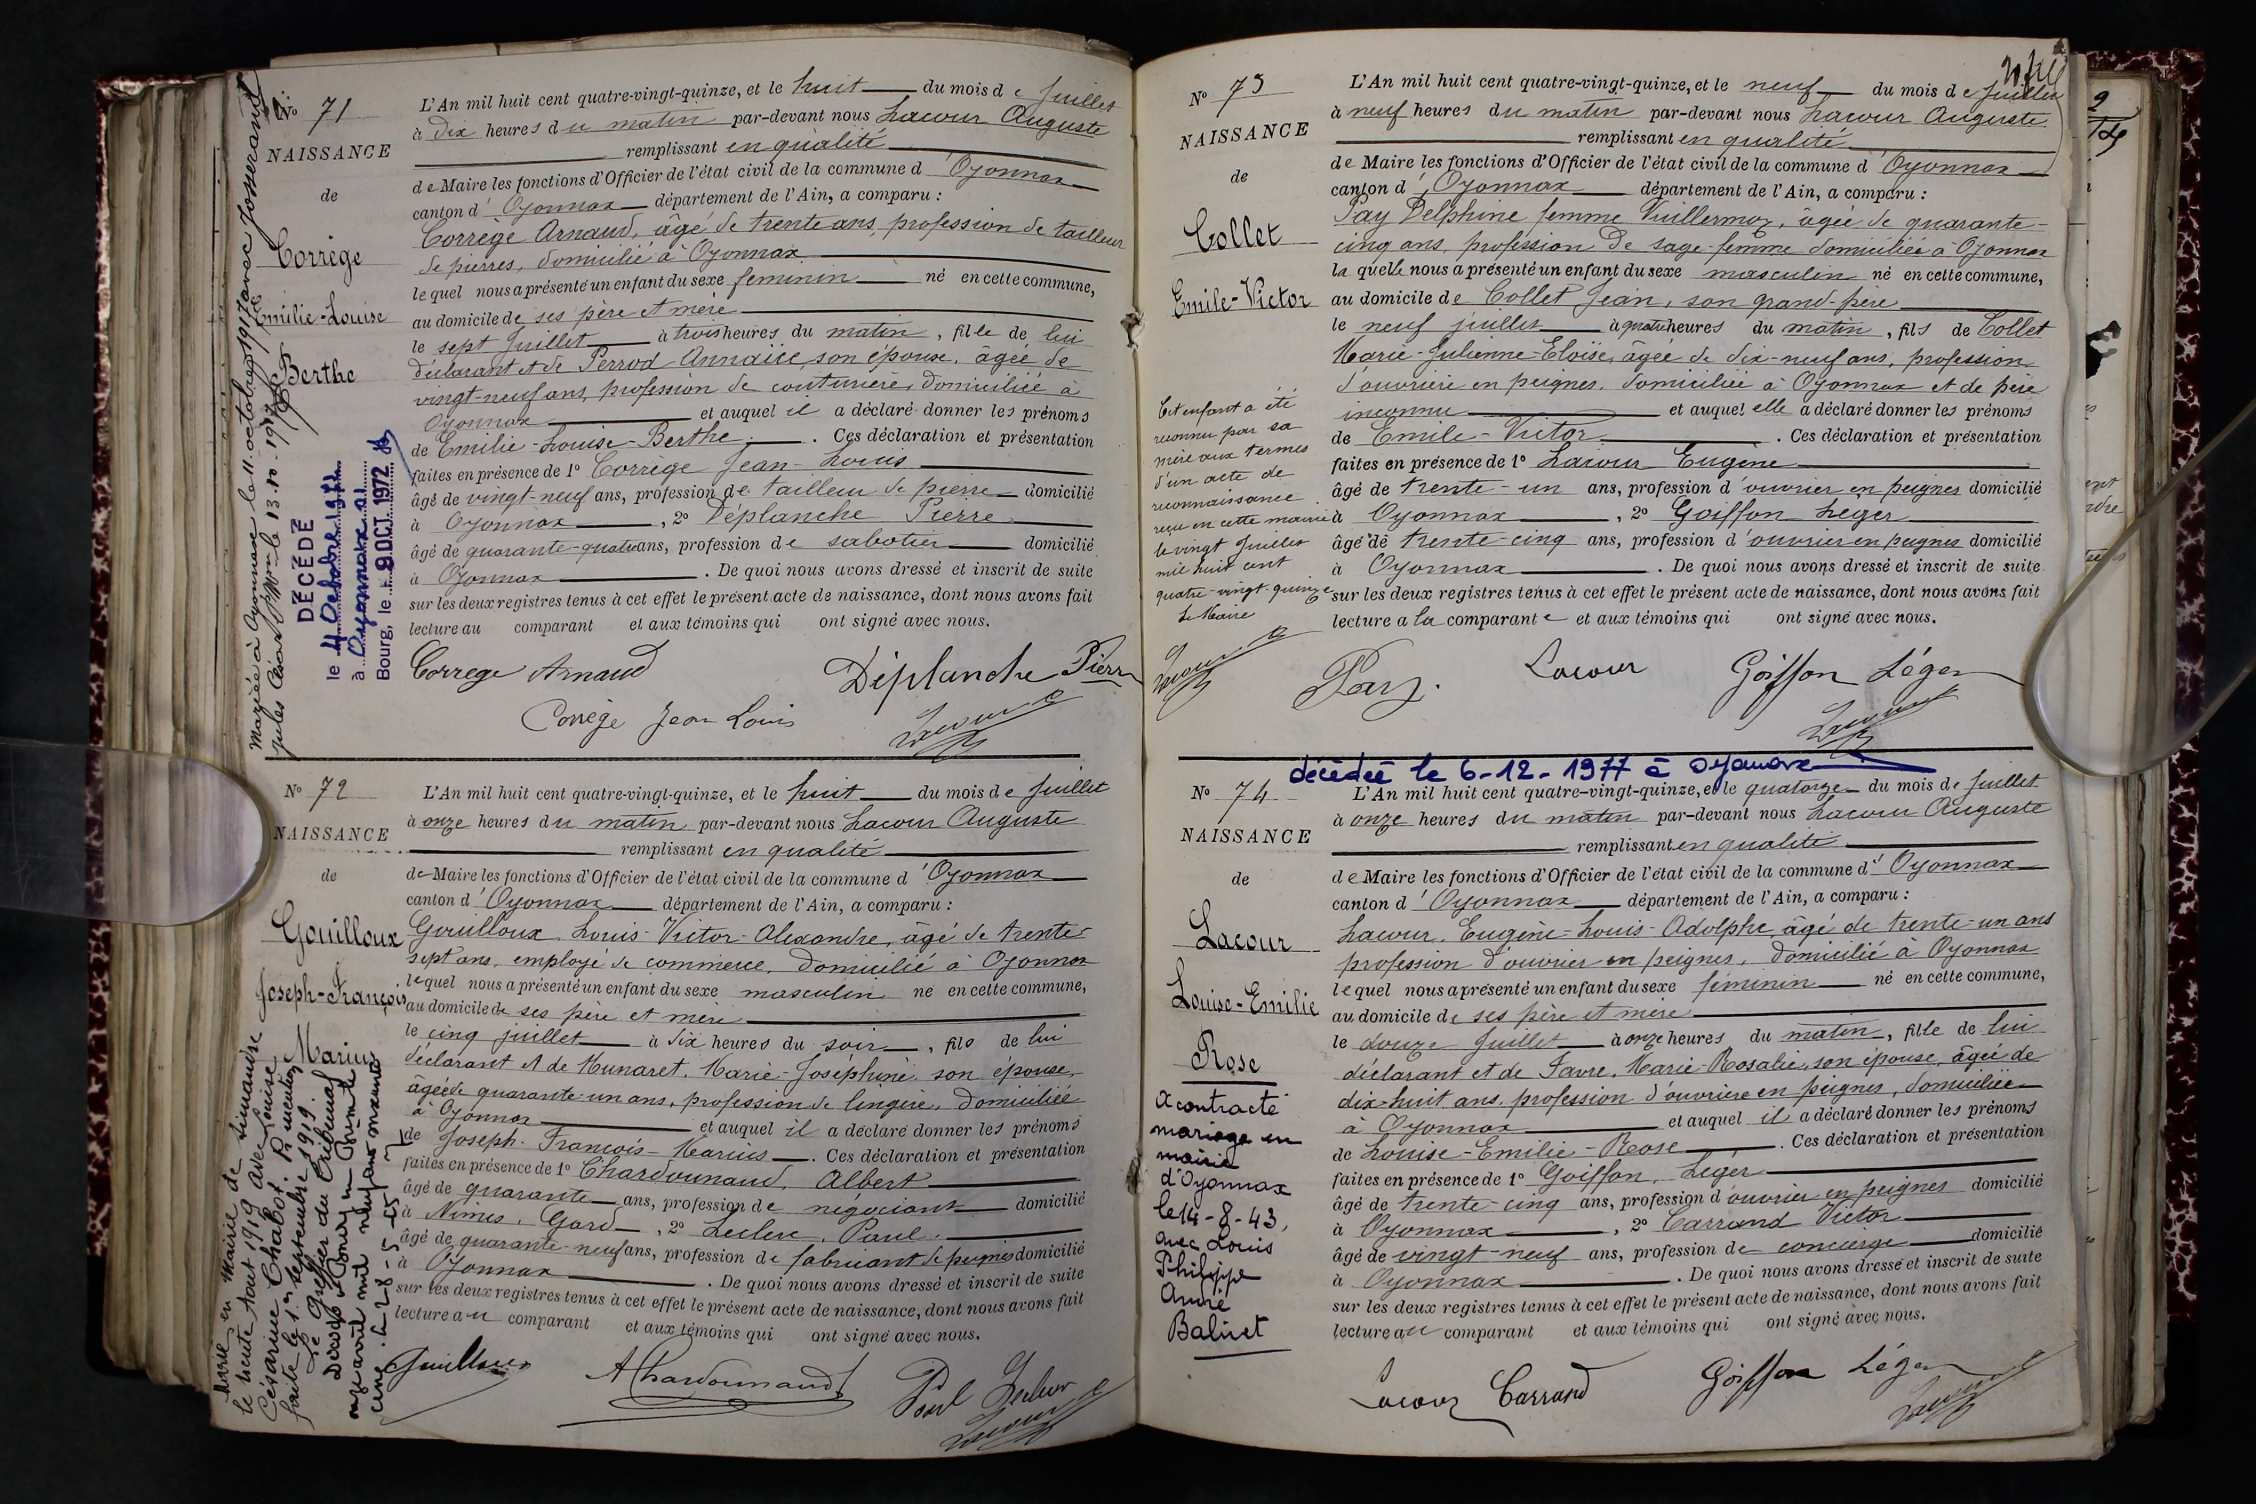 No 71
NAISSANCE
de
Corrège
Emilie-Louise
Berthe
L'An mil huit cent quatre-vingt-quinze, et le huit du mois de Juillet
à dix heures du matin par-devant nous Lacour Auguste
remplissant en qualité
de Maire les fonctions d'Officier de l'état civil de la commune d'Oyonnax
canton d'Oyonnax département de l'Ain, a comparu :
Corrège Arnaud, âgé de trente ans, profession de tailleur
de pierres, domicilié à Oyonnax
lequel nous a présenté un enfant du sexe feminin né en cette commune,
au domicile de ses père et mère
le sept Juillet à trois heures du matin, fille de lui
déclarant et de Perrod Annaïce, son épouse, âgée de
vingt-neuf ans, profession de couturière, domiciliée à
Oyonnax et auquel il a déclaré donner les prénoms
de Emilie-Louise-Berthe. Ces déclaration et présentation
faites en présence de 1° Corrège Jean-Louis
âgé de vingt-neuf ans, profession de tailleur de pierre domicilié
à Oyonnax, 2° Déplanche Pierre
âgé de quarante-quatre ans, profession de sabotier domicilié
à Oyonnax. De quoi nous avons dressé et inscrit de suite
sur les deux registres tenus à cet effet le présent acte de naissance, dont nous avons fait
lecture au comparant et aux témoins qui ont signé avec nous.
Corrège Arnaud Déplanche Pierre
Corrège Jean Louis Lacour
Mariée à Oyonnax le 11 octobre 1917 avec Josserand
Jules César
DÉCÉDÉ
le 4 Octobre 1972
à Oyonnax 01
Bourg, le 9 OCT 1972
No 72
NAISSANCE
de
Gouilloux
Joseph-François
Marius
L'An mil huit cent quatre-vingt-quinze, et le huit du mois de Juillet
à onze heures du matin par-devant nous Lacour Auguste
remplissant en qualité
de Maire les fonctions d'Officier de l'état civil de la commune d'Oyonnax
canton d'Oyonnax département de l'Ain, a comparu :
Gouilloux Louis-Victor-Alexandre, âgé de trente-
sept ans, employé de commerce, domicilié à Oyonnax
lequel nous a présenté un enfant du sexe masculin né en cette commune,
au domicile de ses père et mère
le cinq juillet à six heures du soir, fils de lui
déclarant et de Munaret, Marie-Joséphine, son épouse,
âgée de quarante-un ans, profession de lingère, domiciliée
à Oyonnax et auquel il a déclaré donner les prénoms
de Joseph-François-Marius. Ces déclaration et présentation
faites en présence de 1° Chardounaud, Albert
âgé de quarante ans, profession de négociant domicilié
à Nimes, Gard, 2° Leclerc, Paul
âgé de quarante-neuf ans, profession de fabricant de peignes domicilié
à Oyonnax. De quoi nous avons dressé et inscrit de suite
sur les deux registres tenus à cet effet le présent acte de naissance, dont nous avons fait
lecture au comparant et aux témoins qui ont signé avec nous.
Gouilloux AChardounaud Paul Leclerc
Lacour
Marié en Mairie de Simandre
le trente Aout 1919 avec Louise
Césarine Chabot.
faite le 1er septembre 1919.
Le Greffier du Tribunal
onze avril mil neuf cent soixante
cinq. Le 28-5-65
No 73
NAISSANCE
de
Collet
Emile-Victor
Cet enfant a été
reconnu par sa
mère aux termes
d'un acte de
reconnaissance
reçu en cette mairie
le vingt Juillet
mil huit cent
quatre-vingt-quinze
Le Maire
Lacour
L'An mil huit cent quatre-vingt-quinze, et le neuf du mois de Juillet
à neuf heures du matin par-devant nous Lacour Auguste
remplissant en qualité
de Maire les fonctions d'Officier de l'état civil de la commune d'Oyonnax
canton d'Oyonnax département de l'Ain, a comparu :
Pay Delphine femme Vuillermoz, âgée de quarante-
cinq ans, profession de sage-femme domiciliée à Oyonnax
laquelle nous a présenté un enfant du sexe masculin né en cette commune,
au domicile de Collet Jean, son grand-père
le neuf juillet à quatre heures du matin, fils de Collet
Marie-Julienne-Eloïse, âgée de dix-neuf ans, profession
d'ouvrière en peignes, domiciliée à Oyonnax et de père
inconnu et auquel elle a déclaré donner les prénoms
de Emile-Victor. Ces déclaration et présentation
faites en présence de 1° Lacour Eugène
âgé de trente-un ans, profession d'ouvrier en peignes domicilié
à Oyonnax, 2° Goiffon Léger
âgé de trente-cinq ans, profession d'ouvrier en peignes domicilié
à Oyonnax. De quoi nous avons dressé et inscrit de suite
sur les deux registres tenus à cet effet le présent acte de naissance, dont nous avons fait
lecture a la comparante et aux témoins qui ont signé avec nous.
Pay. Lacour Goiffon Léger
Lacour
décédée le 6-12-1977 à Oyonnax
No 74
NAISSANCE
de
Lacour
Louise-Emilie
Rose
a contracté
mariage en
mairie
d'Oyonnax
le 14-8-43,
avec Louis
Philippe
André
Balivet
L'An mil huit cent quatre-vingt-quinze, et le quatorze du mois de Juillet
à onze heures du matin par-devant nous Lacour Auguste
remplissant en qualité
de Maire les fonctions d'Officier de l'état civil de la commune d'Oyonnax
canton d'Oyonnax département de l'Ain, a comparu :
Lacour, Eugène-Louis-Adolphe, âgé de trente-un ans
profession d'ouvrier en peignes, domicilié à Oyonnax
lequel nous a présenté un enfant du sexe féminin né en cette commune,
au domicile de ses père et mère
le douze Juillet à onze heures du matin, fille de lui
déclarant et de Favre, Marie-Rosalie, son épouse, âgée de
dix-huit ans, profession d'ouvrière en peignes, domiciliée
à Oyonnax et auquel il a déclaré donner les prénoms
de Louise-Emilie-Rose. Ces déclaration et présentation
faites en présence de 1° Goiffon, Léger
âgé de trente-cinq ans, profession d'ouvrier en peignes domicilié
à Oyonnax, 2° Carrand Victor
âgé de vingt-neuf ans, profession de concierge domicilié
à Oyonnax. De quoi nous avons dressé et inscrit de suite
sur les deux registres tenus à cet effet le présent acte de naissance, dont nous avons fait
lecture au comparant et aux témoins qui ont signé avec nous.
Lacour Carrand Goiffon Léger
Lacour